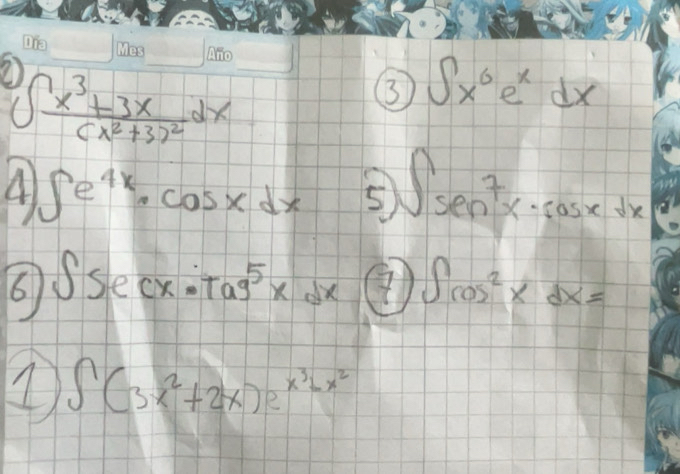 Día Mes Año
2) ∫ x³+3x / (x²+3)² dx
③ ∫x⁶ eˣ dx
4) ∫e⁴ˣ · cosx dx
5) ∫ sen⁷x · cosx dx
6) ∫ Secx · Tag⁵x dx
⑦ ∫cos² x dx =
1) ∫(3x²+2x)e^x³+x²